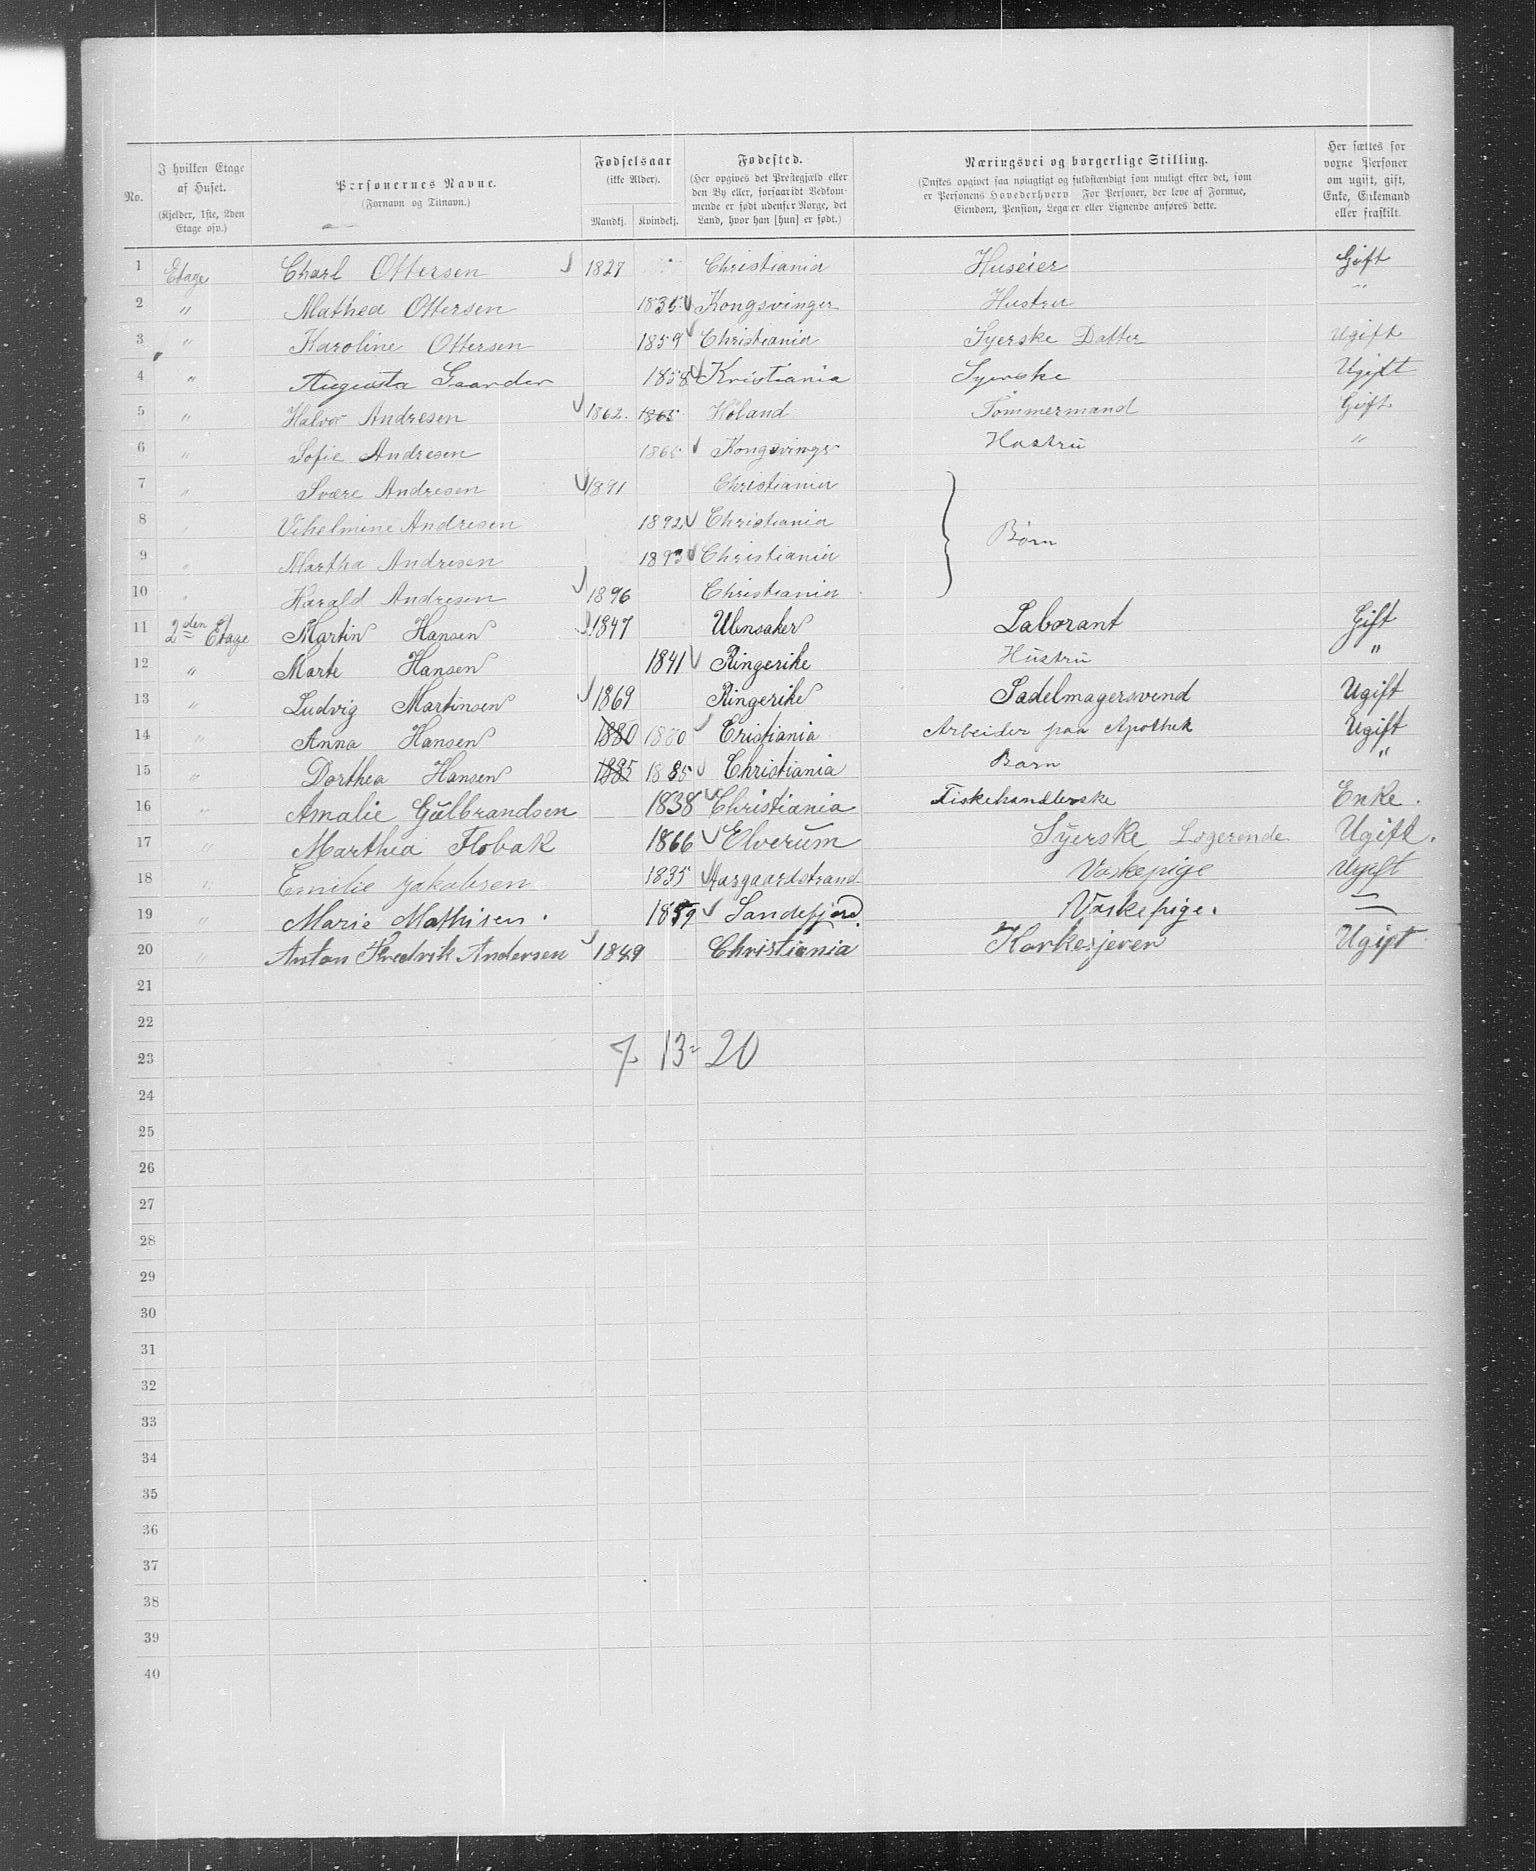 No.
I hvilken Etage af Huset. (Kjelder, 1ste, 2den Etage osv.)
Personernes Navne. (Fornavn og Tilnavn.)
Fødselsaar (ikke Alder). Mandkj. Kvindekj.
Fødested. (Her opgives det Prestegjæld eller den By eller, forsaavidt Vedkommende er født udenfor Norge, det Land, hvor han [hun] er født.)
Næringsvei og borgerlige Stilling. (Ønskes opgivet saa nøiagtigt og fuldstændigt som muligt efter det, som er Personens Hovederhverv. For Personer, der leve af Formue, Eiendom, Pension, Legater eller Lignende anføres dette.
Her sættes for voxne Personer om ugift, gift, Enke, Enkemand eller fraskilt.
1 Etage Charl Ottersen 1827 Christiania Huseier Gift
2 " Mathea Ottersen 1835 Kongsvinger Hustru "
3 " Karoline Ottersen 1859 Christiania Syerske Datter Ugift
4 " Augusta Gaarder 1858 Kristiania Syerske Ugift
5 " Halvor Andresen 1862. 1865 Høland Tømmermand Gift
6 " Sofie Andresen 1865 Kongsvinger Hustru "
7 " Svære Andresen 1891 Christiania
8 " Vihelmine Andresen 1892 Christiania Børn
9 " Martha Andresen 1893 Christiania
10 " Harald Andresen 1896 Christiania
11 2den Etage Martin Hansen 1847 Ulensaker Laborant Gift
12 " Marte Hansen 1841 Ringerike Hustru "
13 " Ludvig Martinsen 1869 Ringerike Sadelmagersvend Ugift
14 " Anna Hansen 1880 1880 Cristiania Arbeider paa Apothek Ugift
15 " Dorthea Hansen 1885 1885 Christiania Barn "
16 " Amalie Gulbrandsen 1838 Christiania Fiskehandlerske Enke.
17 " Marthea Flobak 1866 Elverum Syerske Logerende Ugift.
18 " Emilie Jakobsen 1835 Aasgaardstrand Vaskepige Ugift
19 " Marie Mathisen. 1859 Sandefjord. Vaskepige. —
20 " Anton Fredrik Andersen 1849 Christiania Korkesjerer Ugift
21
22
23 7. 13= 20
24
25
26
27
28
29
30
31
32
33
34
35
36
37
38
39
40